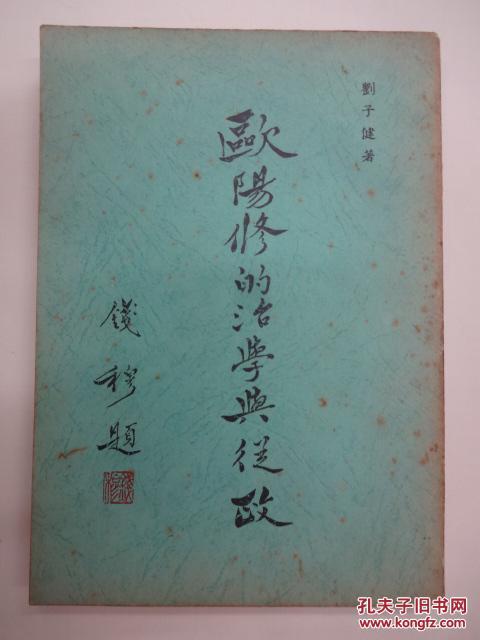 劉子健著
歐陽修的治學與從政
錢穆題
孔夫子旧书网
KONGFZ.COM